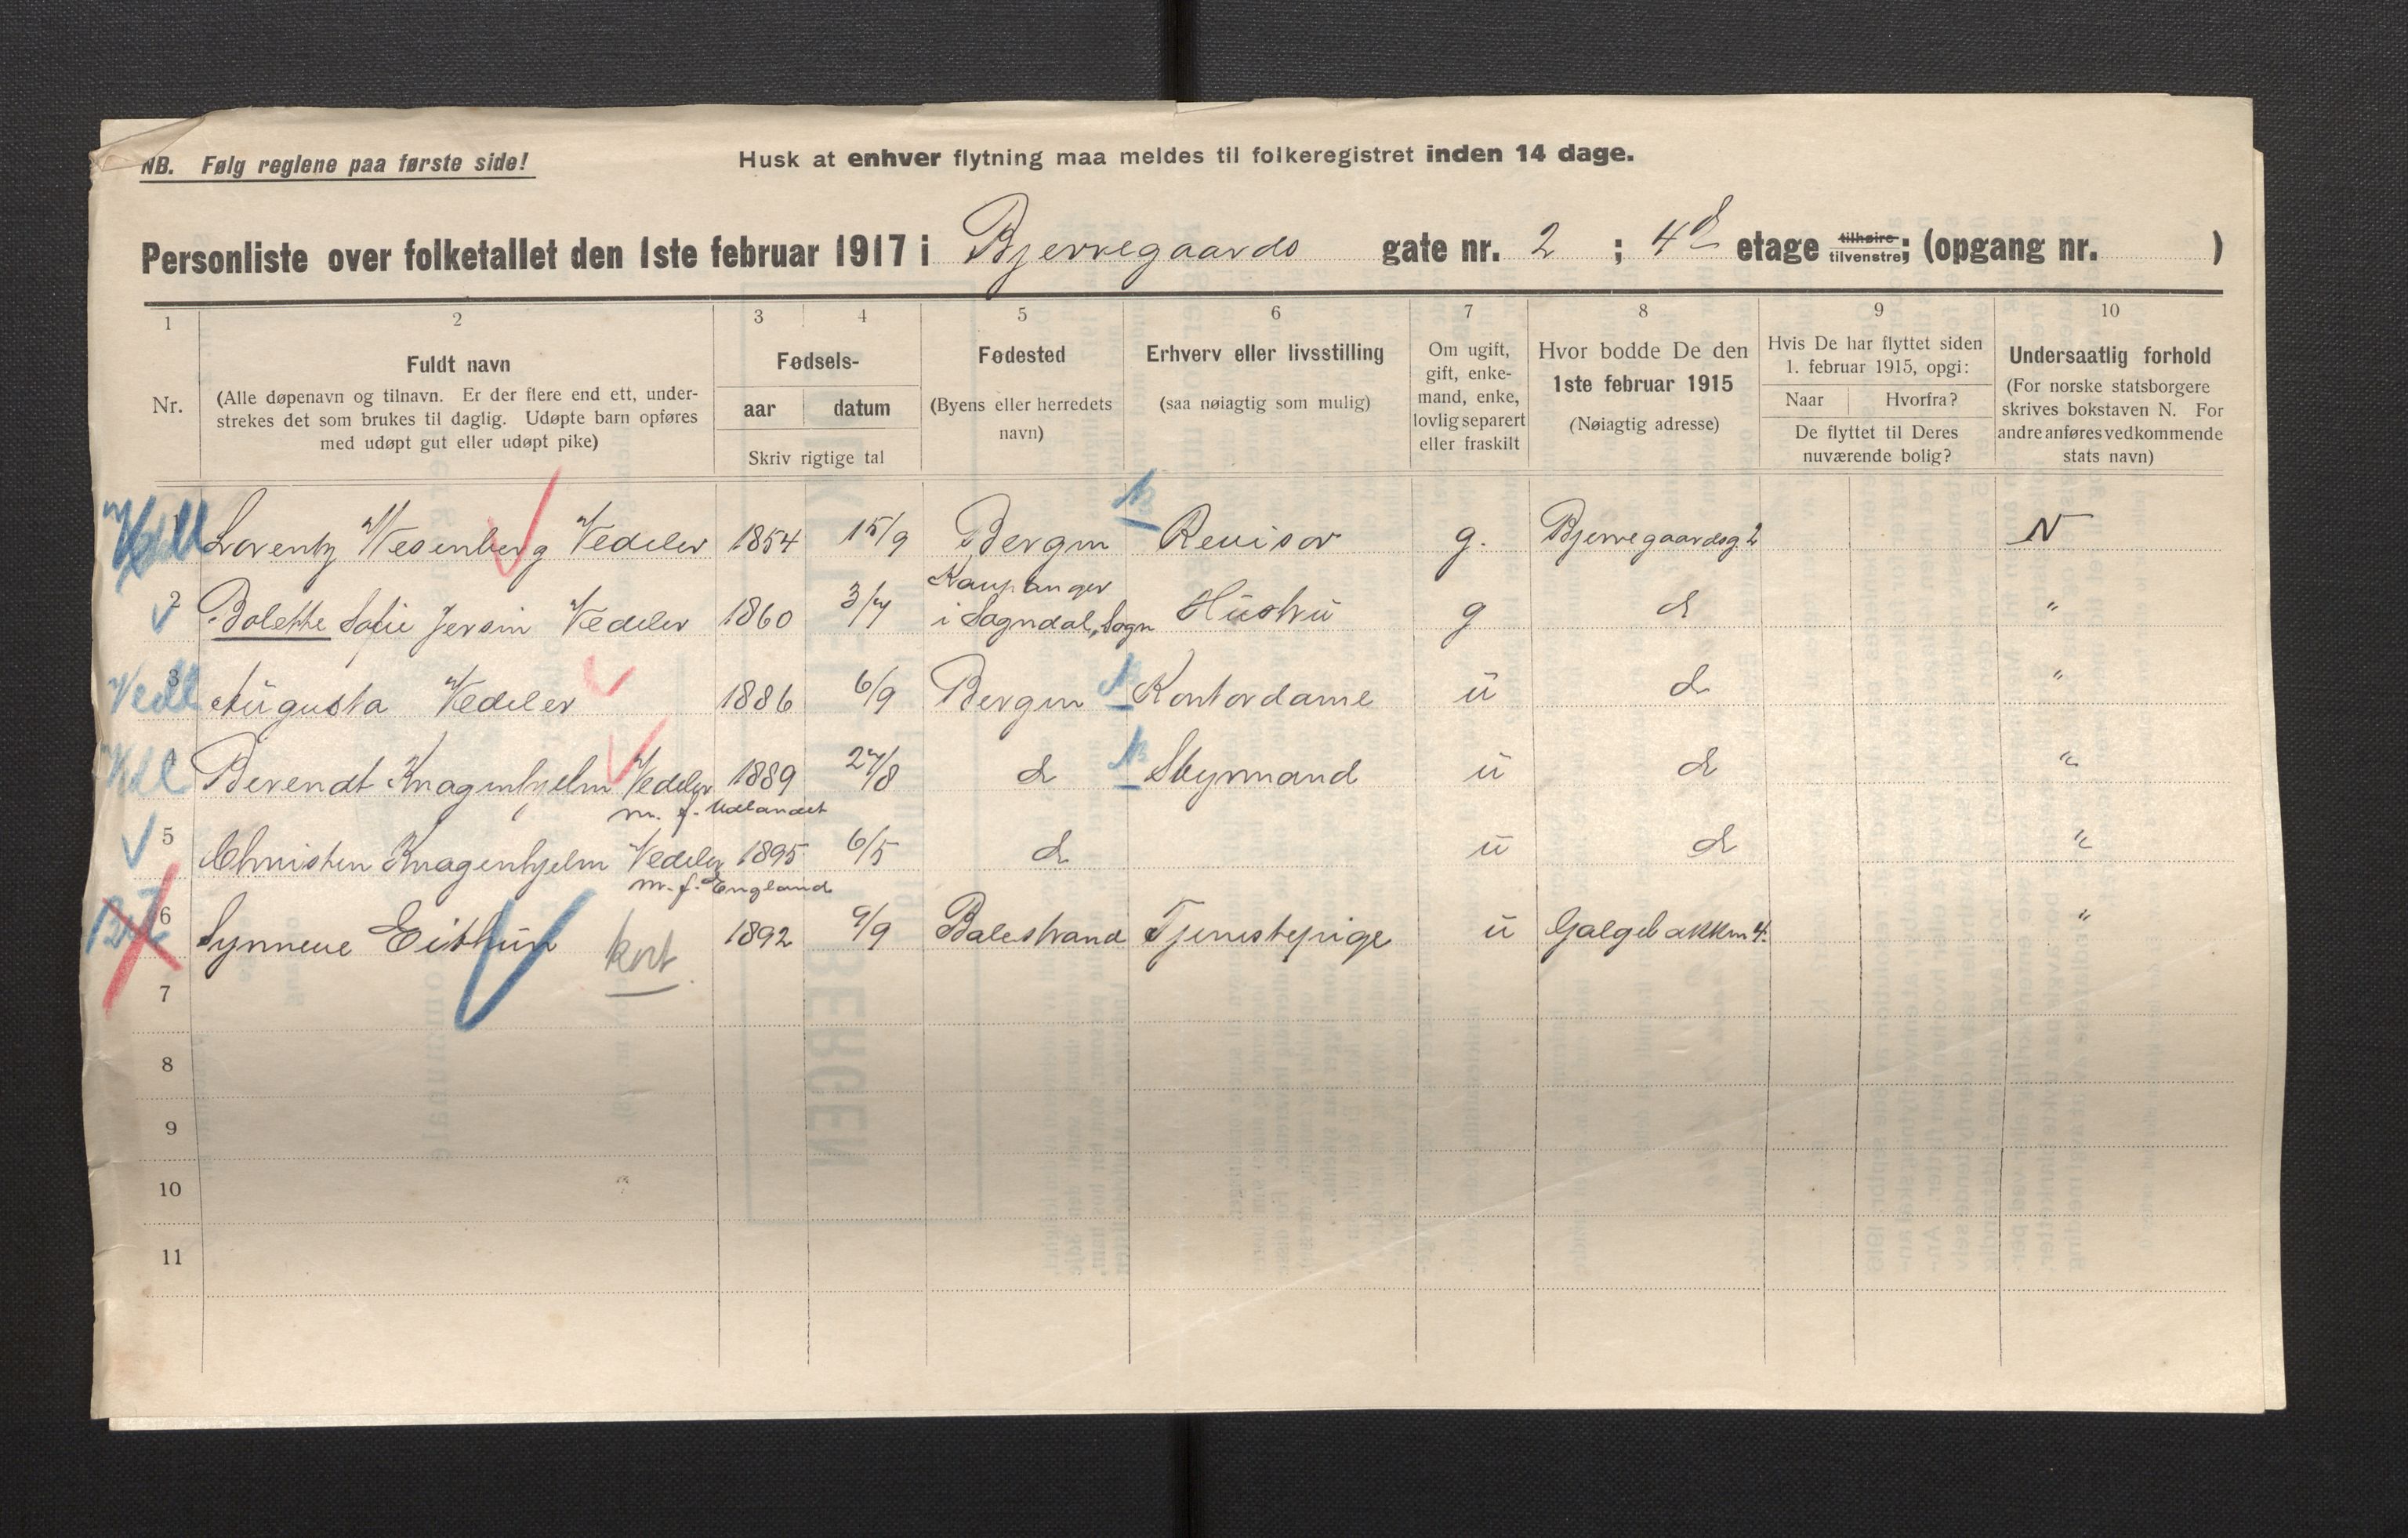 NB. Følg reglene paa første side!
Husk at enhver flytning maa meldes til folkeregistret inden 14 dage.
Personliste over folketallet den 1ste februar 1917 i Bjerregaards gate nr. 2 ; 4d etage tilhøire tilvenstre; (opgang nr. )
1 2 3 4 5 6 7 8 9 10
Nr.
Fuldt navn
(Alle døpenavn og tilnavn. Er der flere end ett, under-
strekes det som brukes til daglig. Udøpte barn opføres
med udøpt gut eller udøpt pike)
Fødsels-
aar datum
Skriv rigtige tal
Fødested
(Byens eller herredets
navn)
Erhverv eller livsstilling
(saa nøiagtig som mulig)
Om ugift,
gift, enke-
mand, enke,
lovlig separert
eller fraskilt
Hvor bodde De den
1ste februar 1915
(Nøiagtig adresse)
Hvis De har flyttet siden
1. februar 1915, opgi:
Naar Hvorfra?
De flyttet til Deres
nuværende bolig?
Undersaatlig forhold
(For norske statsborgere
skrives bokstaven N. For
andre anføres vedkommende
stats navn)
1 Lorentz Wesenberg Vedeler 1854 15/9 Bergen Revisor g. Bjerregaardsg. 2 N
Kaupanger
2 Bolette Sofie Jersin Vedeler 1860 3/7 i Sogndal, Sogn Hustru g d "
Vedl 3 Augusta Vedeler 1886 6/9 Bergen Kontordame u d "
Berendt Knagenhjelm Vedeler 1889 27/8 d Styrmand u d "
m. f. Udlandet
5 Christen Knagenhjelm Vedeler 1895 6/5 d u d "
m. f. England
6 Synneve Eithun kort 1892 9/9 Balestrand Tjenestepige u Galgebakken 4. "
7
8
9
10
11